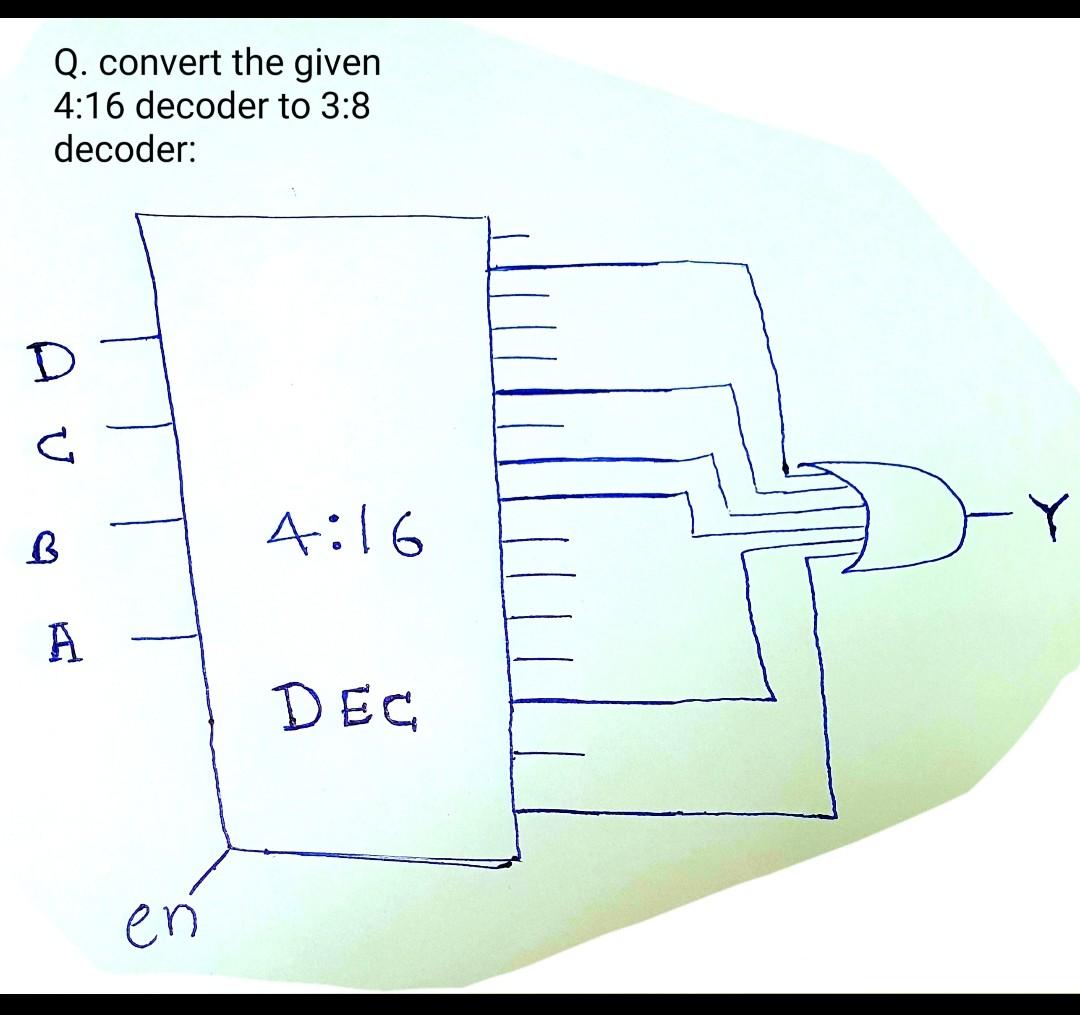 Q. convert the given
4:16 decoder to 3:8
decoder:
D
C
B
A
4:16
DEC
Y
en